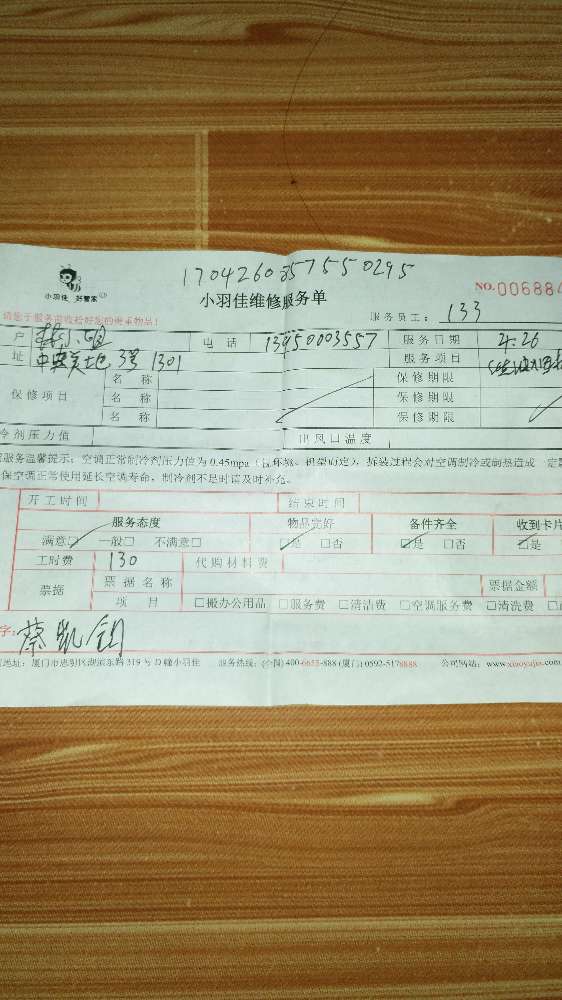 1704260357550295
小羽佳 好管家
小羽佳维修服务单
NO.006884
服务员工: 133
户 小姐 电 话 13950003557 服务日期 4.26
址 中央美地 3号 1301 服务项目
保修项目 名 称 保修期限
名 称 保修期限
名 称 保修期限
冷剂压力值 出风口温度
服务温馨提示：空调正常制冷剂压力值为0.45mpa
保空调正常使用延长空调寿命，制冷剂不足时请及时补充。
开工时间 结束时间
服务态度 物品完好 备件齐全 收到卡片
满意□ 一般□ 不满意□ □是 □否 □是 □否 □是
工时费 130 代购材料费
票据 票据名称 票据金额
项 目 □搬办公用品 □服务费 □清洁费 □空调服务费 □清洗费
字：蔡凯
地址：厦门市思明区湖滨东路319号D幢小羽佳 服务热线：(全国)400-6655-888 (厦门) 0592-5178888 公司网站：www.xiaoyujia.com